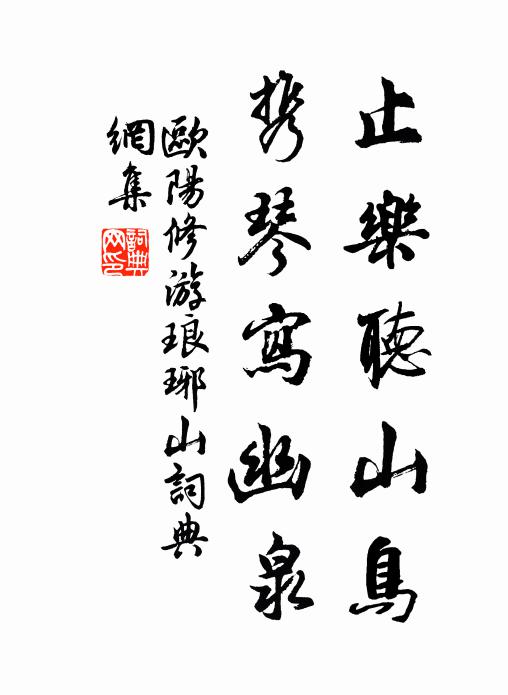 止樂聽山鳥
携琴寫幽泉
歐陽修游琅琊山詞典
網集
詞典網印